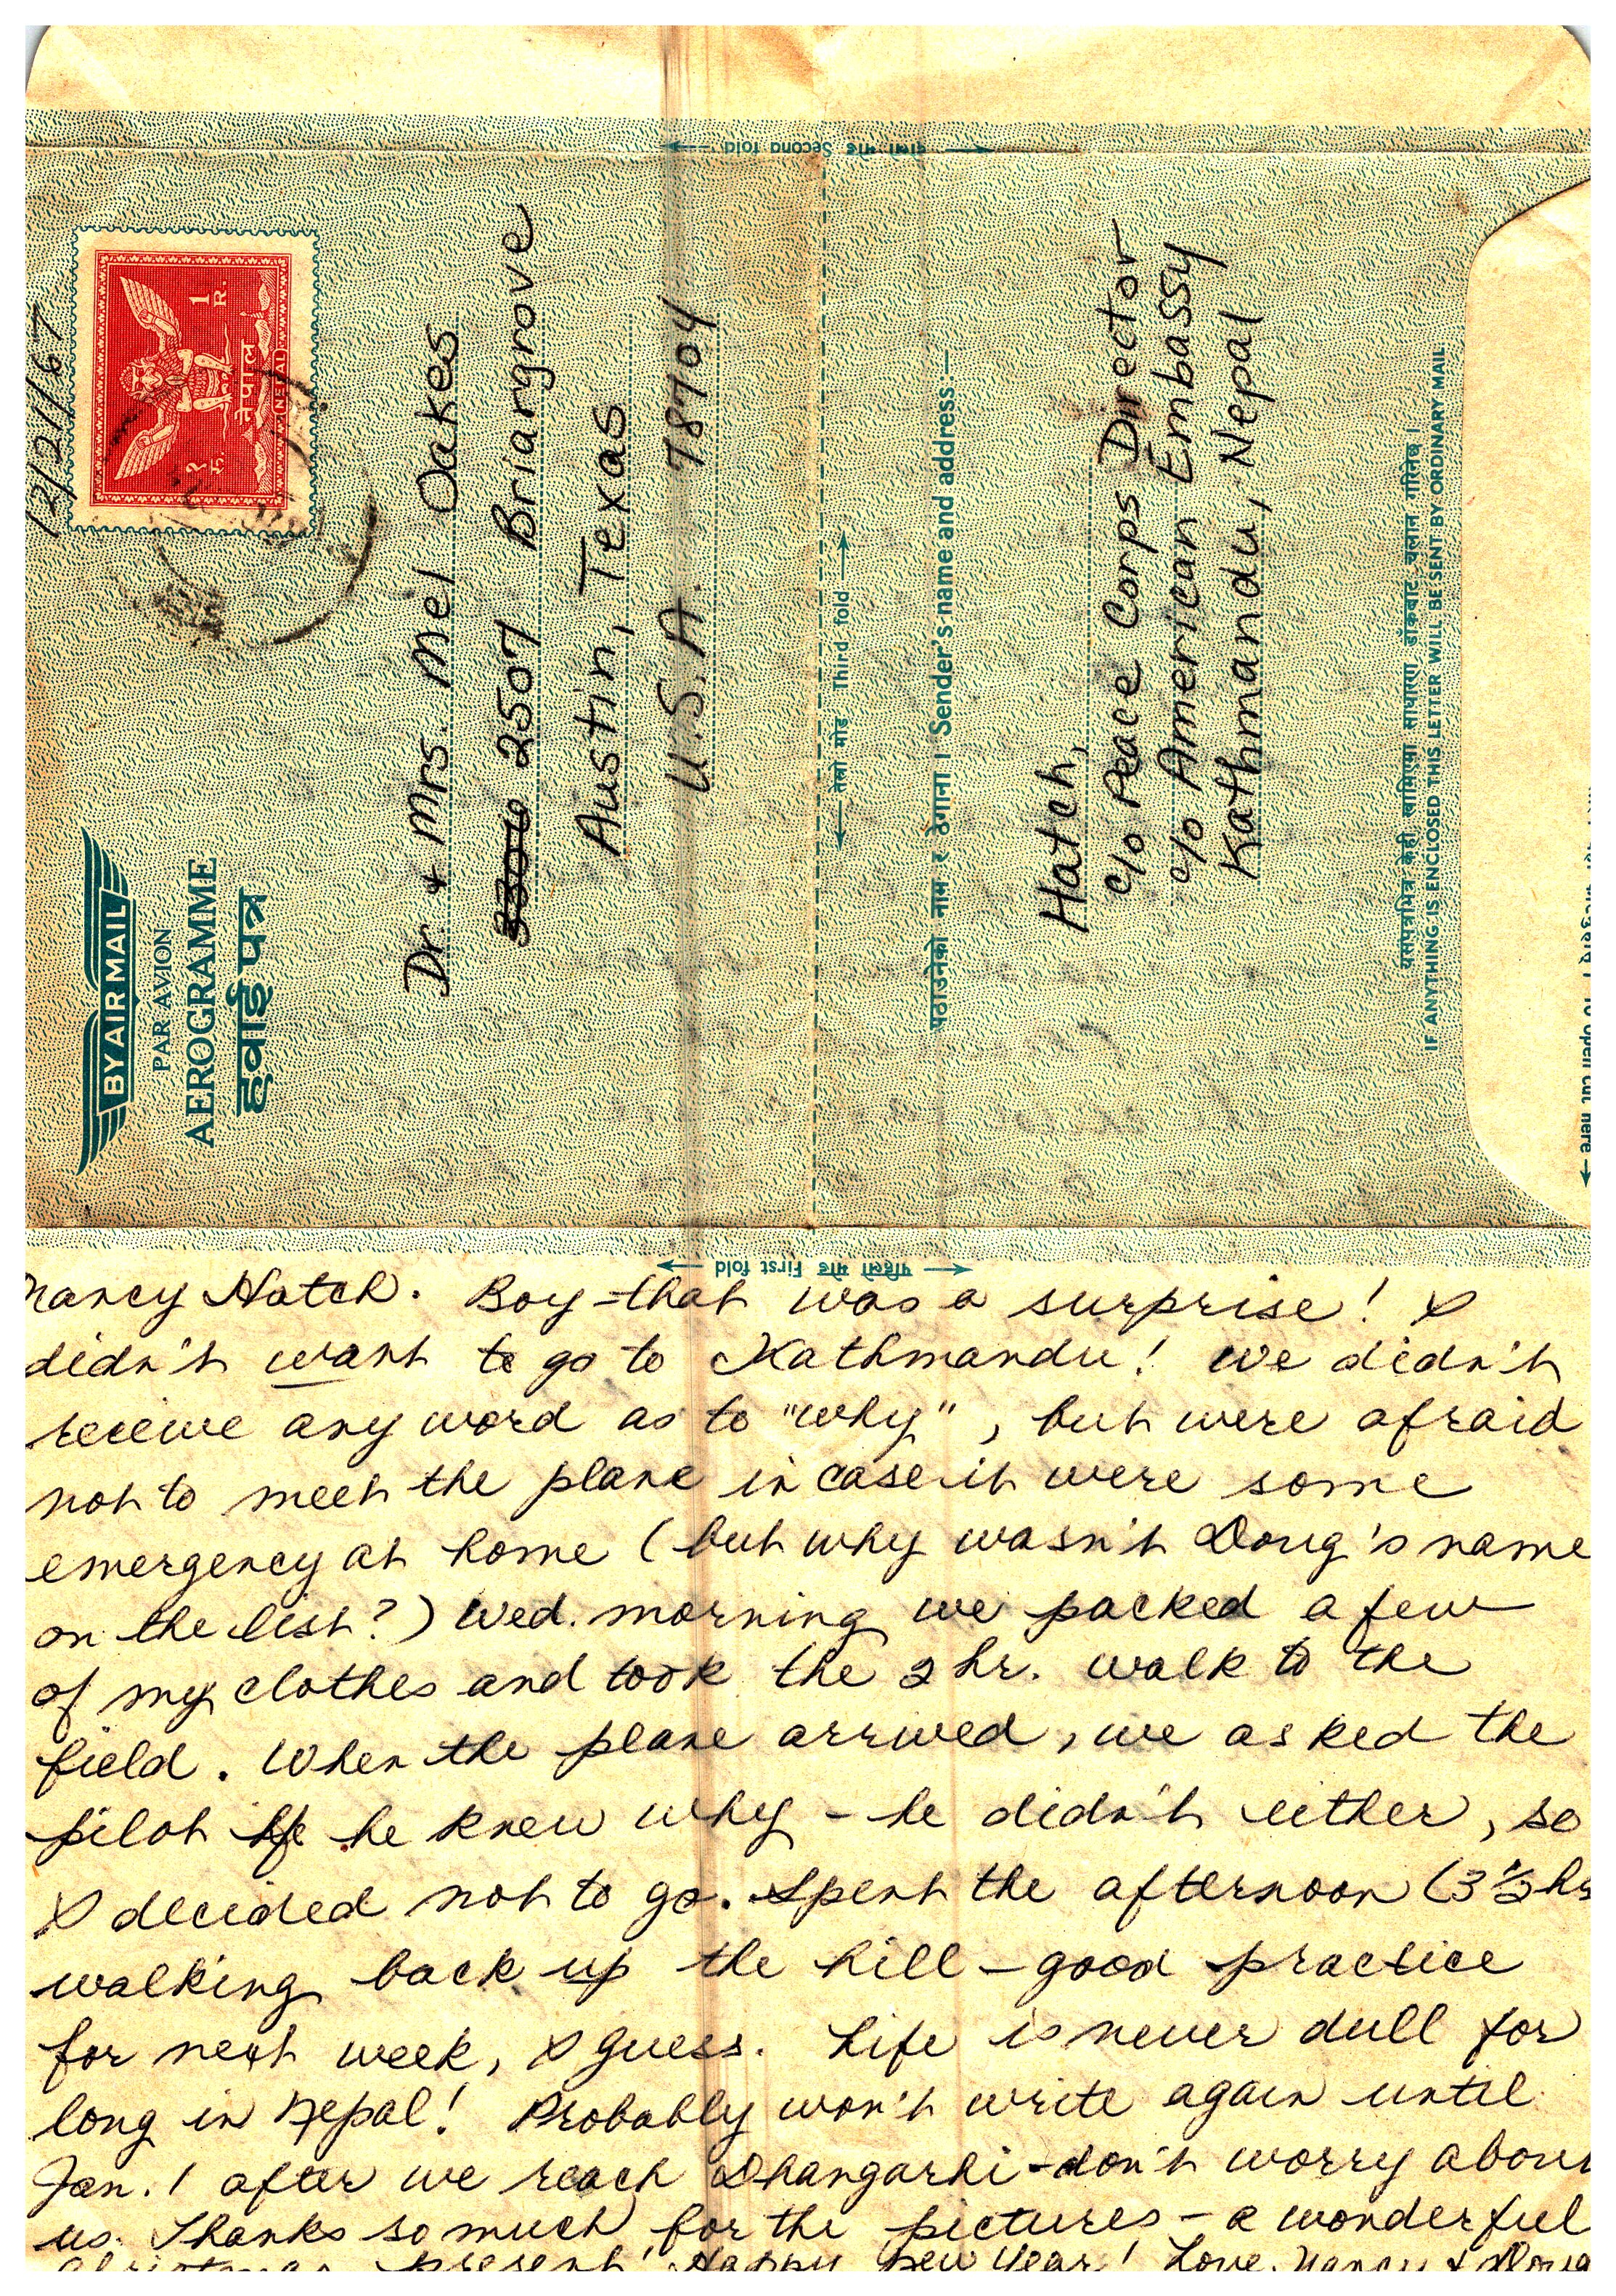 12/21/67
१ रु.
1 R.
नेपाल
NEPAL
BY AIR MAIL
PAR AVION
AEROGRAMME
हवाई पत्र
Dr. & Mrs. Mel Oakes
2507 Briargrove
Austin, Texas
U.S.A. 78704
दोस्रो मोड Second fold
तेस्रो मोड Third fold
पठाउनेको नाम र ठेगाना । Sender's name and address:—
Hatch,
c/o Peace Corps Director
c/o American Embassy
Kathmandu, Nepal
यसपत्रभित्र केही राखिएमा साधारण डाँकबाट चलान गरिनेछ ।
IF ANYTHING IS ENCLOSED THIS LETTER WILL BE SENT BY ORDINARY MAIL
To open cut here
पहिलो मोड First fold
Nancy Hatch. Boy-that was a surprise! I
didn't want to go to Kathmandu! We didn't
receive any word as to "why", but were afraid
not to meet the plane in case it were some
emergency at home (but why wasn't Doug's name
on the list?) Wed. morning we packed a few
of my clothes and took the 2 hr. walk to the
field. When the plane arrived, we asked the
pilot if he knew why - he didn't either, so
I decided not to go. Spent the afternoon (3½ hrs
walking back up the hill - good practice
for next week, I guess. Life is never dull for
long in Nepal! Probably won't write again until
Jan. 1 after we reach Dhangarhi-don't worry about
us. Thanks so much for the pictures - a wonderful
Christmas present! Happy New Year! Love, Nancy & Doug